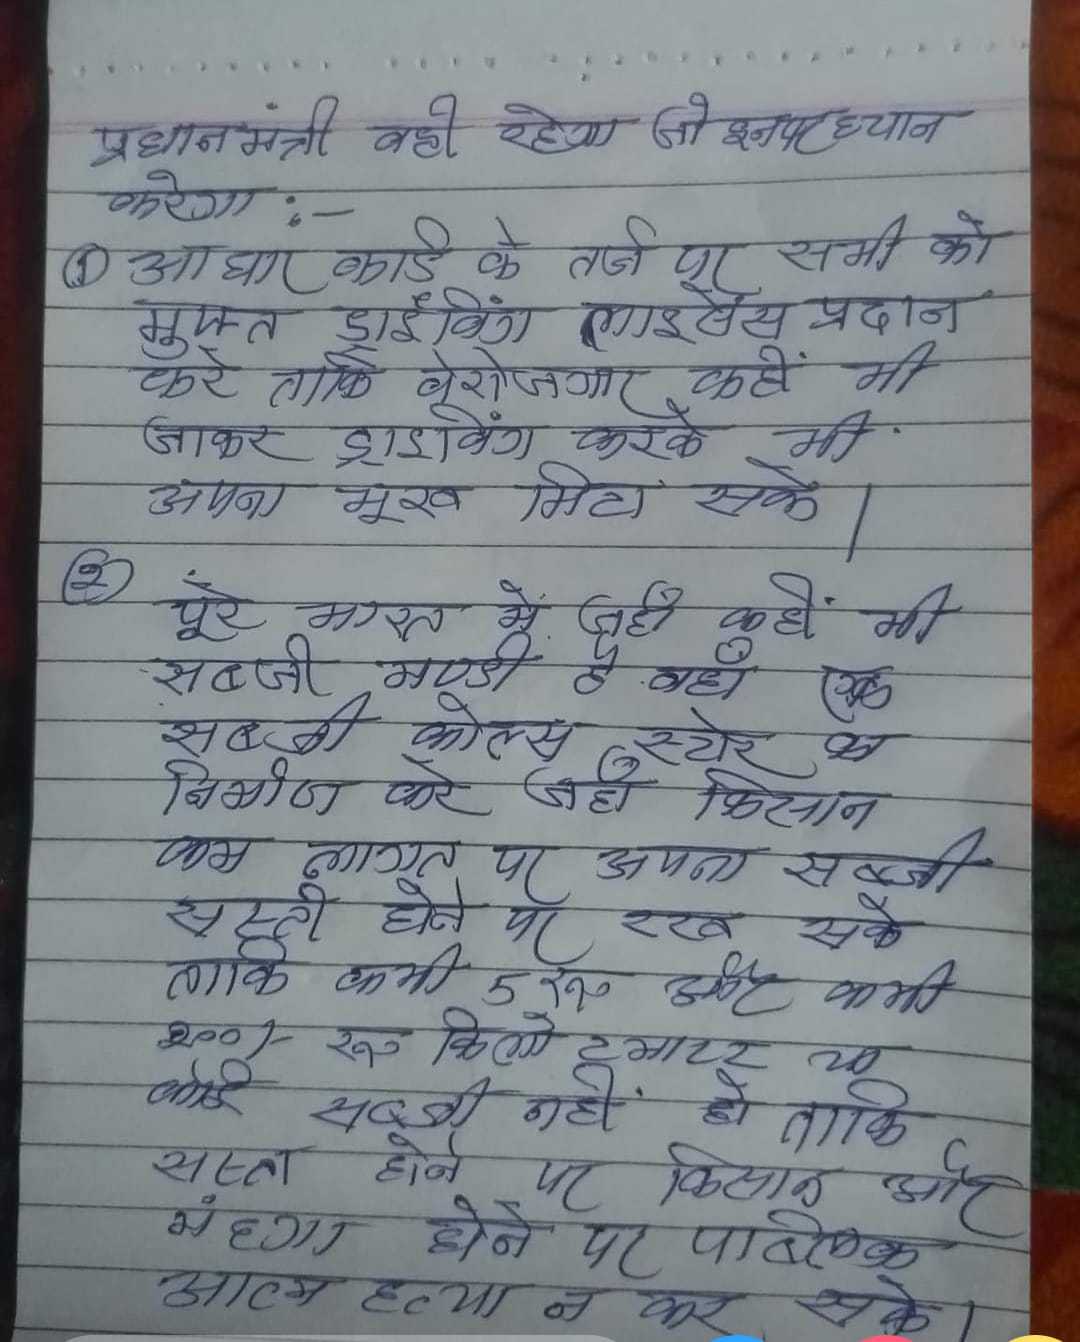 प्रधानमंत्री वही रहेगा जो इनपर ध्यान
करेगा :-
① आधार कार्ड के तर्ज पर सभी को
मुफ्त ड्राईविंग लाइसेंस प्रदान
करे ताकि बेरोजगार कहीं भी
जाकर ड्राइविंग करके भी
अपना भूख मिटा सके।
② पूरे भारत में जहाँ कहीं भी
सब्जी मण्डी है वहाँ एक
सब्जी कोल्ड स्टोर का
निर्माण करे जहाँ किसान
कम लागत पर अपना सब्जी
सस्ती होने पर रख सके
ताकि कभी 5 रू० और कभी
200/- रू० किलो टमाटर या
कोई सब्जी नहीं हो ताकि
सस्ता होने पर किसान और
मंहगा होने पर पाब्लिक
आत्म हत्या न कर सके।